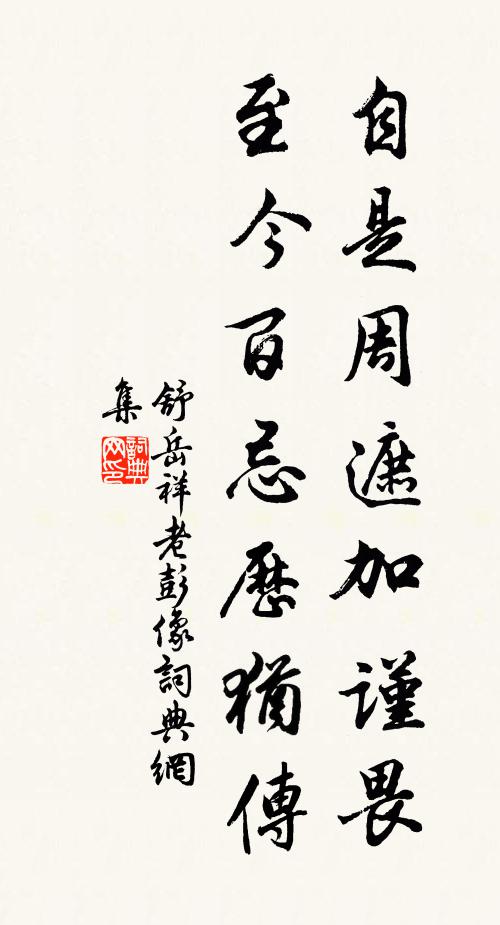 自是周遮加謹畏
至今百忌歷猶傳
舒岳祥老彭像詞典網
集
詞典
网印